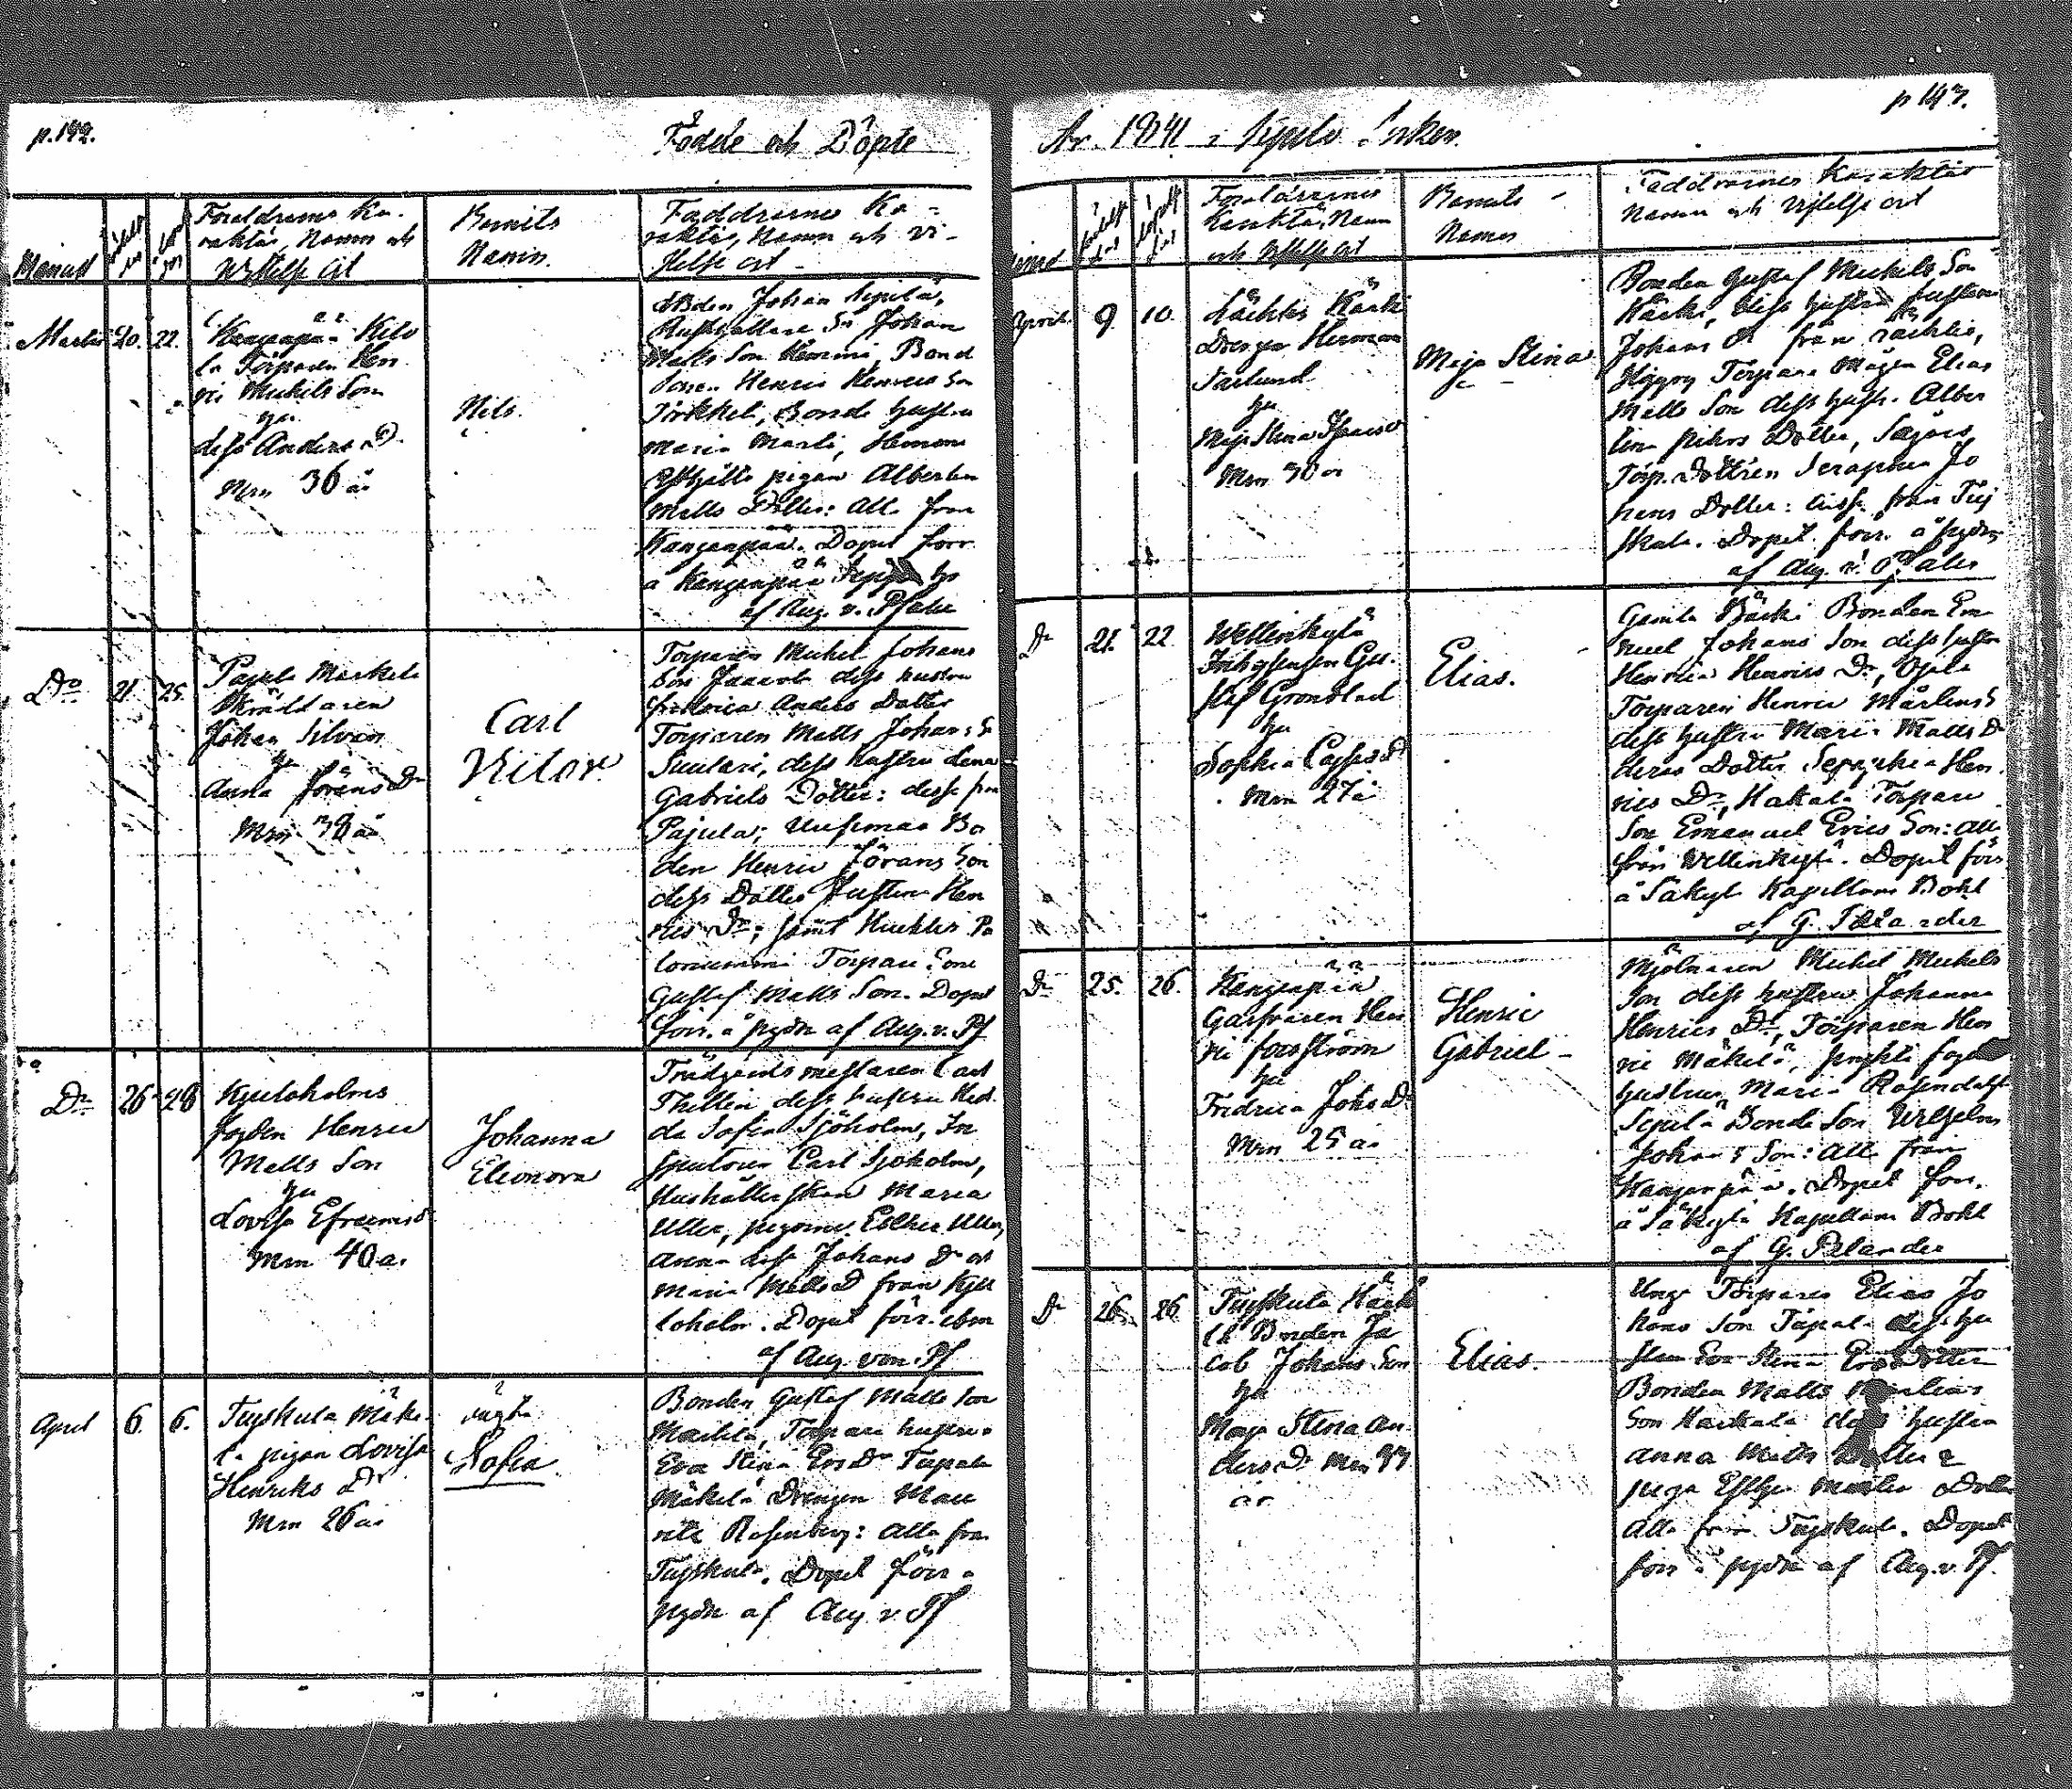 p.142.
Födde och Döpte
Månad
Föräldrarnes Ka-
raktär, Namn och
Vistelse Ort
Barnets
Namn.
Faddrarnes Ka-
raktär, Namn och Vi-
stelse ort
Martii 20. 22.
Kangenpää Kilo
la Torparen Hen
ric Michels Son
hu
dess Anders D.
Mrn 36 år
Nils.
Johan Sepilä,
Hushållare Sn Johan
Matts Son Hemmi, Bond
Sonen Henric Henrics Son
Pirkkel, Bonde hustru
Maria Marti, Hemmi
pigan Albertin
Matts Dotter: alla från
Kangenpää. Dopet förr.
å Kangenpää
af Aug. v. Pfaler
Do 21. 25.
Pajula Markela
Skräddaren
Johan Silvan
hu
Anna Jörans Dr
Mrn 38 år
Carl
Victor.
Torparen Michel Johans
Son dess hustru
Fredrica Anders Dotter
Torparen Matts Johans S
Suutari, dess hustru Lena
Gabriels Dotter: desse från
Pajula; Bo
den Henric Jörans Son
dess Dotter Justina Hen
rics Dr;
Torpare Son
Gustaf Matts Son. Dopet
förr. å pgdn af Aug. v. Pf
Dr 26 28
Kjuloholms
fogden Henric
Matts Son
hu
Lovisa Efraims D
Mrn 40 år
Johanna
Eleonora
Trädgårdsmästaren Carl
Thellin dess hustru Hed.
da Sofia Sjöholm, In
spectoren Carl Sjöholm,
Hushållerskan Maria
Ulla, pigorna Esther Ulla,
Anna Lisa Johans Dr och
Maria Matts D från Kju
loholm. Dopet förr. ibm
af Aug. von Pf
April 6. 6.
Tuiskula Mäke-
lä pigan Lovisa
Henriks Dr
Mrn 26 år
oägta
Sofia
Bonden Gustaf Matts Son
Markila, Torpare hustru
Eva Stina Ers Dr Tapala
Mäkelä Drengen Mau
ritz Rosenberg: Alla från
Tuiskula. Dopet förr å
pgdn af Aug. v. Pf
År 1841 i Kjulo Socken.
p 143.
Föräldrarnes
Karaktär, Namn
och Vistelse ort
Barnets
Namn
Faddrarnes Karaktär
Namn och Vistelse ort
April. 9. 10.
Rächtis Kärki
Drengen Herman
Färlund
hu
Maja Stina Isacs D
Mrn 30 år
Maja Stina
Bonden Gustaf Michels Son
Kärki, dess hustru Justina
Johans Dr från Rächtis,
Torpare Mågen Elias
Matts Son dess hust. Alber
tina Dotter,
Torp. Dottren Seraphia Jo
hans Dotter: desse från Tuis
kula. Dopet förr. å pgdn
af Aug. v. Pfaler
Dr 21. 22.
Wellinkylä
Inhysingen Gu-
staf Grönblad
hu
Sophia Caspers D
Mrn 27 år
Elias.
Gamla Päcki Bonden Ema
nuel Johans Son dess hustru
Henrica Henrics Dr, Ojala
Torparen Henric Mårtens S
dess hustru Maria Matts D
deras Dotter Seraphia Hen
rics Dr, Hakala Torpare
Son Emanuel Erics Son: alla
från Wellinkylä. Dopet förr
å Säkylä Kapellans Bohl
af G. Pelander
Dr 25. 26.
Kangenpää
Garfvaren Hen
ric Forsström
hu
Fredrica Johs Dr
Mrn 25 år
Henric
Gabriel
Mjölnaren Michel Michels
Son dess hustru Johanna
Henrics Dr, Torparen Hen
ric Mäkelä,
hustru Maria Rosendahl
Sepilä Bonde Son Wilhelm
Johans Son: alla från
Kangenpää. Dopet förr.
å Säkylä Kapellans Bohl
af G. Pelander
Dr 26. 26
Tuiskula
Bonden Ja
cob Johans Son
hu
Maja Stina An
ders Dr Mrn
år
Elias.
Unge Torparen Elias Jo
hans Son Tapala dess hu
stru Eva Stina Ers Dotter
Bonden Matts
Son dess hustru
Anna Matts Dotter &
piga Esther Dotter
Alla från Tuiskula. Dopet
förr å pgdn af Aug. v. Pf.